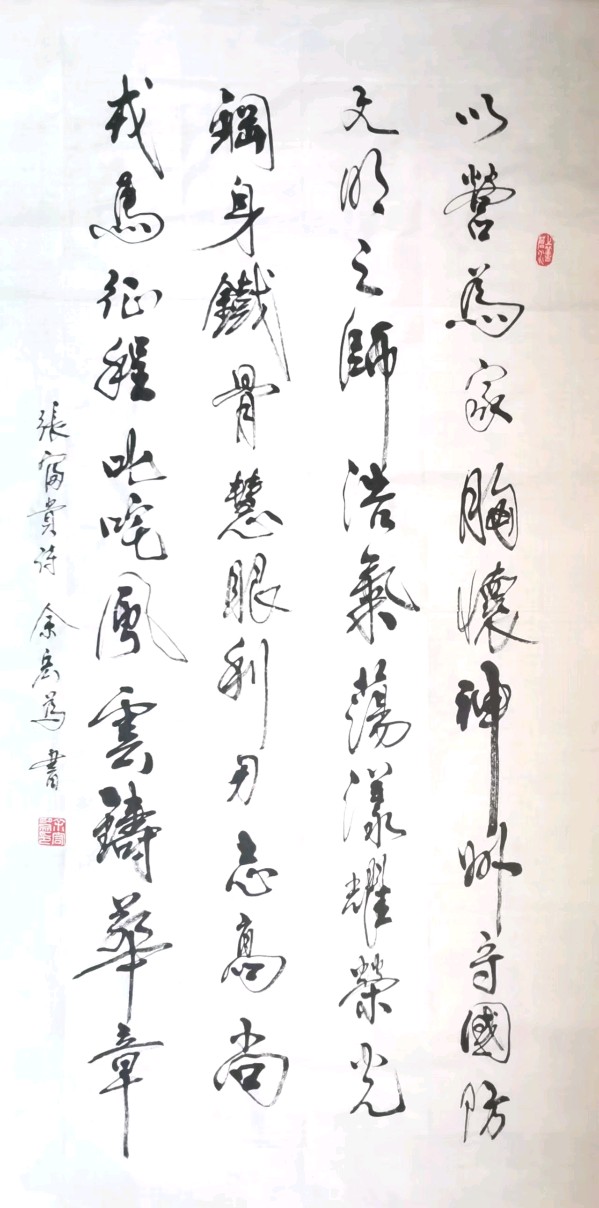 以營為家胸懷神州守國防
文明之師浩氣蕩漾耀榮光
鋼身鐵骨慧眼利刃志高尚
戎馬征程叱咤風雲鑄華章
張富貴詩 余岳為書